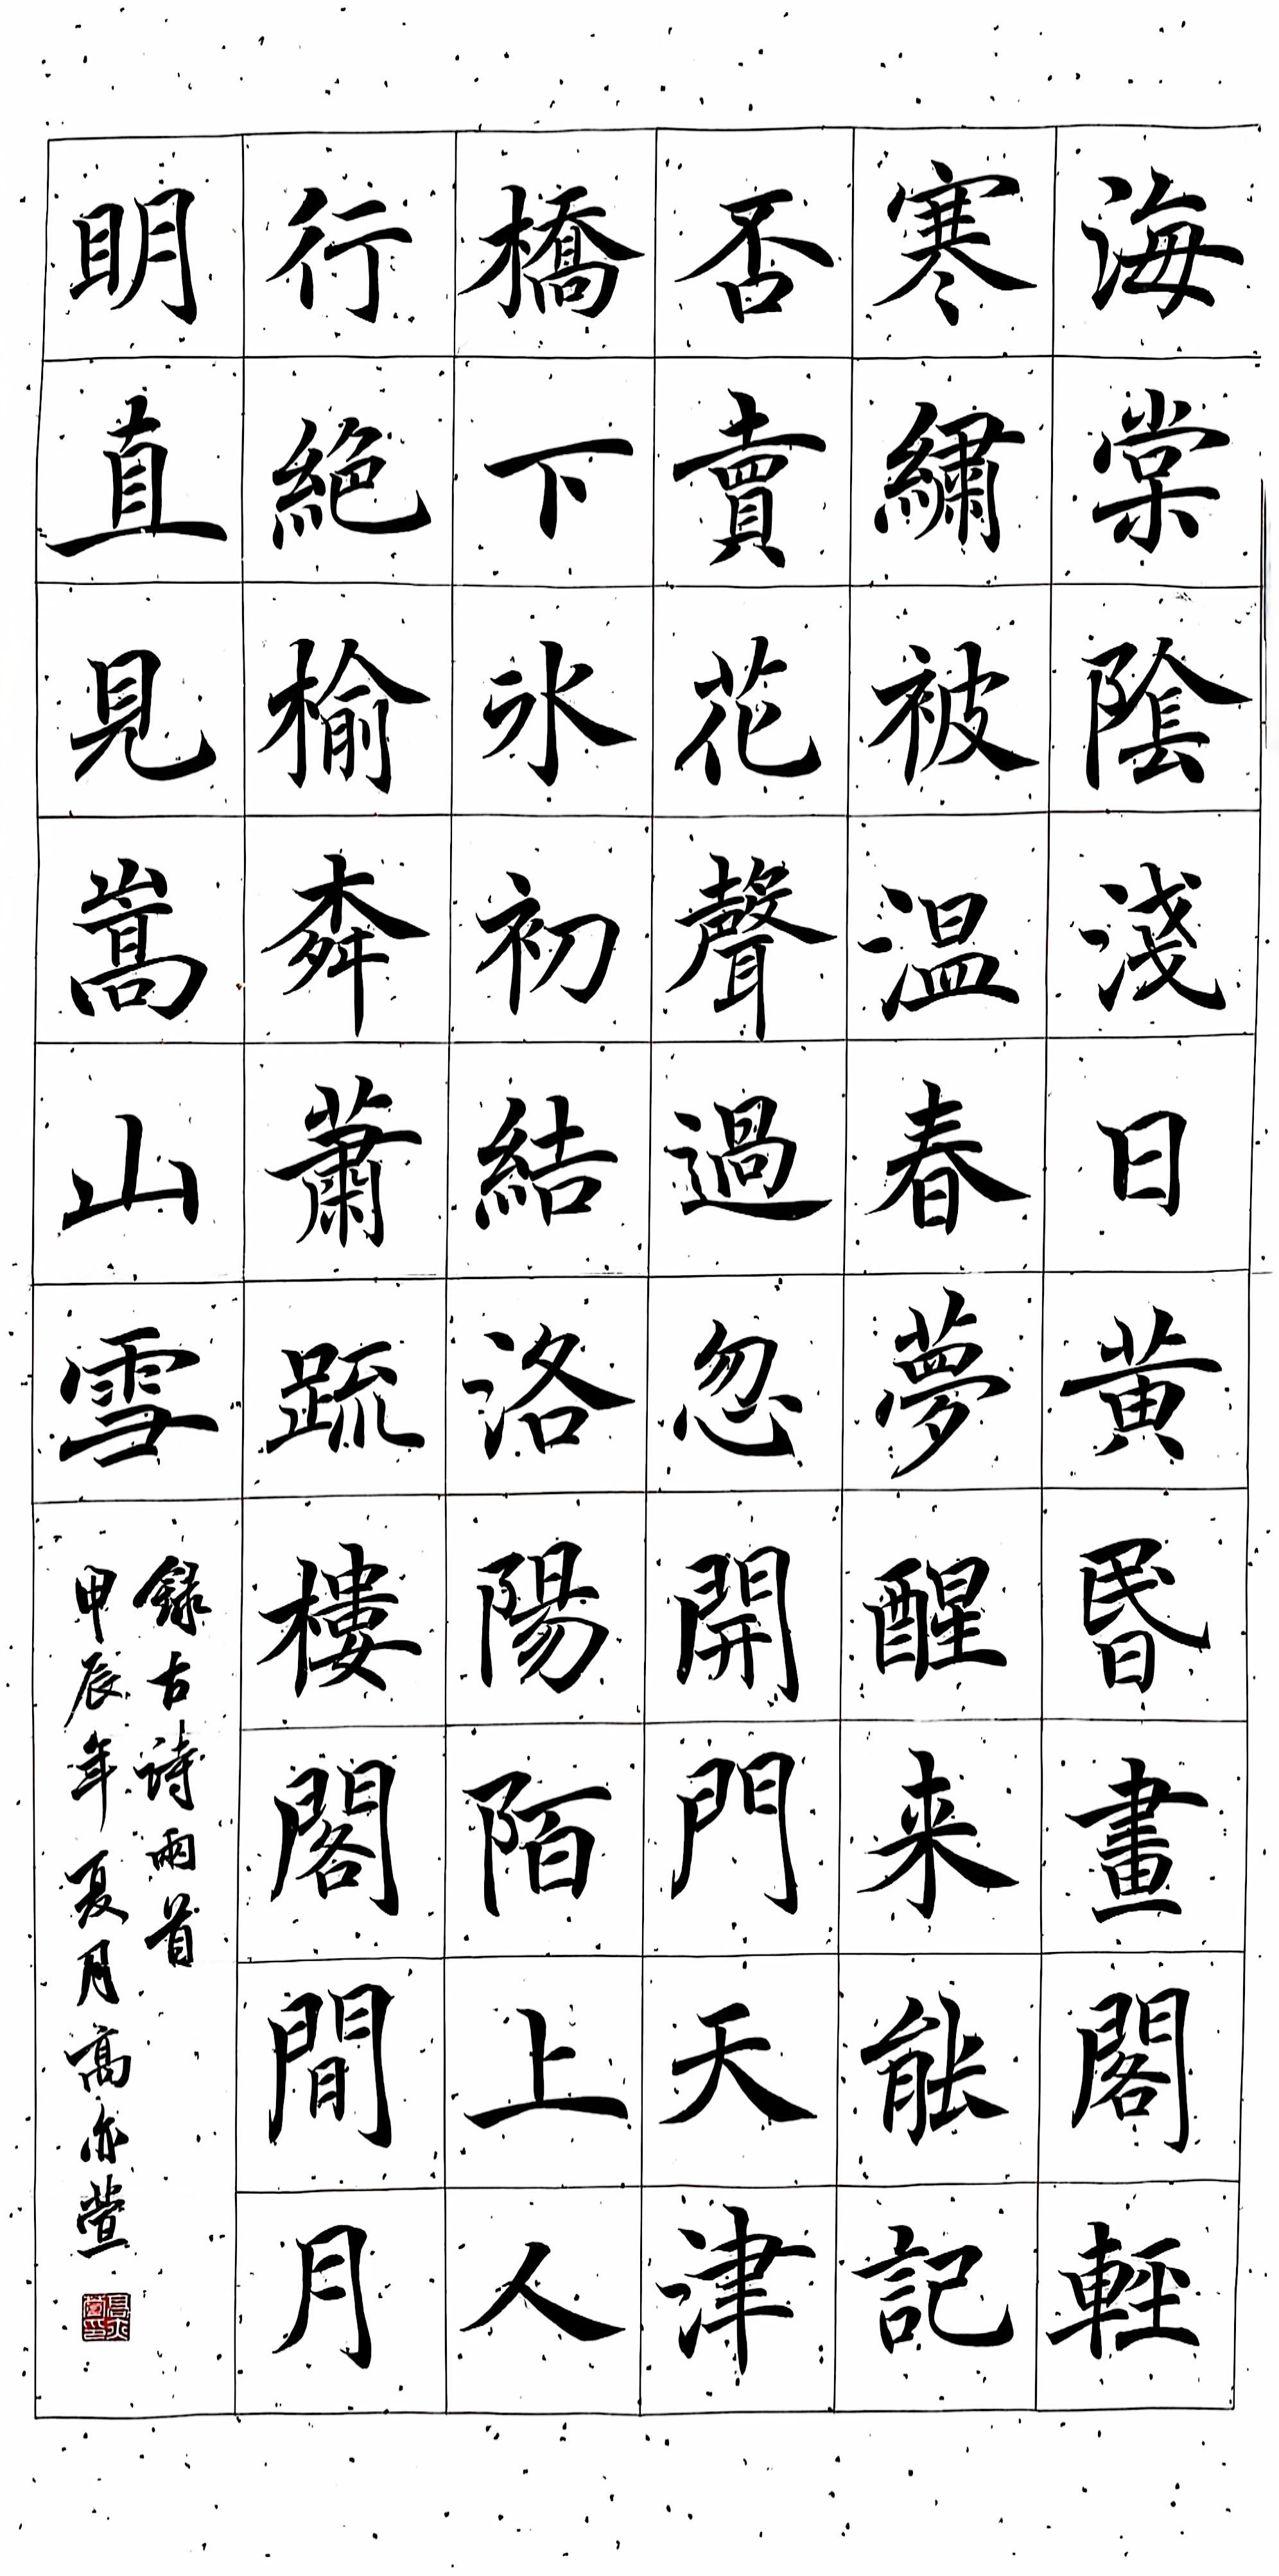 海棠陰淺日黄昬畫閣輕
寒繡被温春夢醒来能記
否賣花聲過忽開門天津
橋下氷初結洛陽陌上人
行絶榆桺蕭疏樓閣間月
眀直見嵩山雪
録古詩兩首
甲辰年夏月高亦萱
高亦萱印